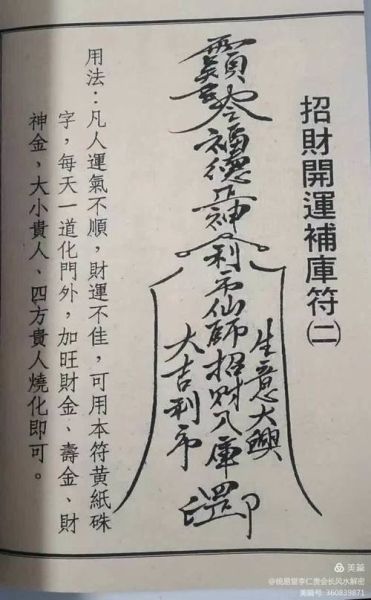 招財開運補庫符㈡
福德正神
利市仙師招財入庫罡印
生意大興
大吉利市
用法：凡人運氣不順，財運不佳，可用本符黃紙硃
字，每天一道化門外，加旺財金、壽金、財
神金，大小貴人、四方貴人燒化即可。
美篇
@桃恩堂李仁贵会长风水解密
美篇号: 360839871